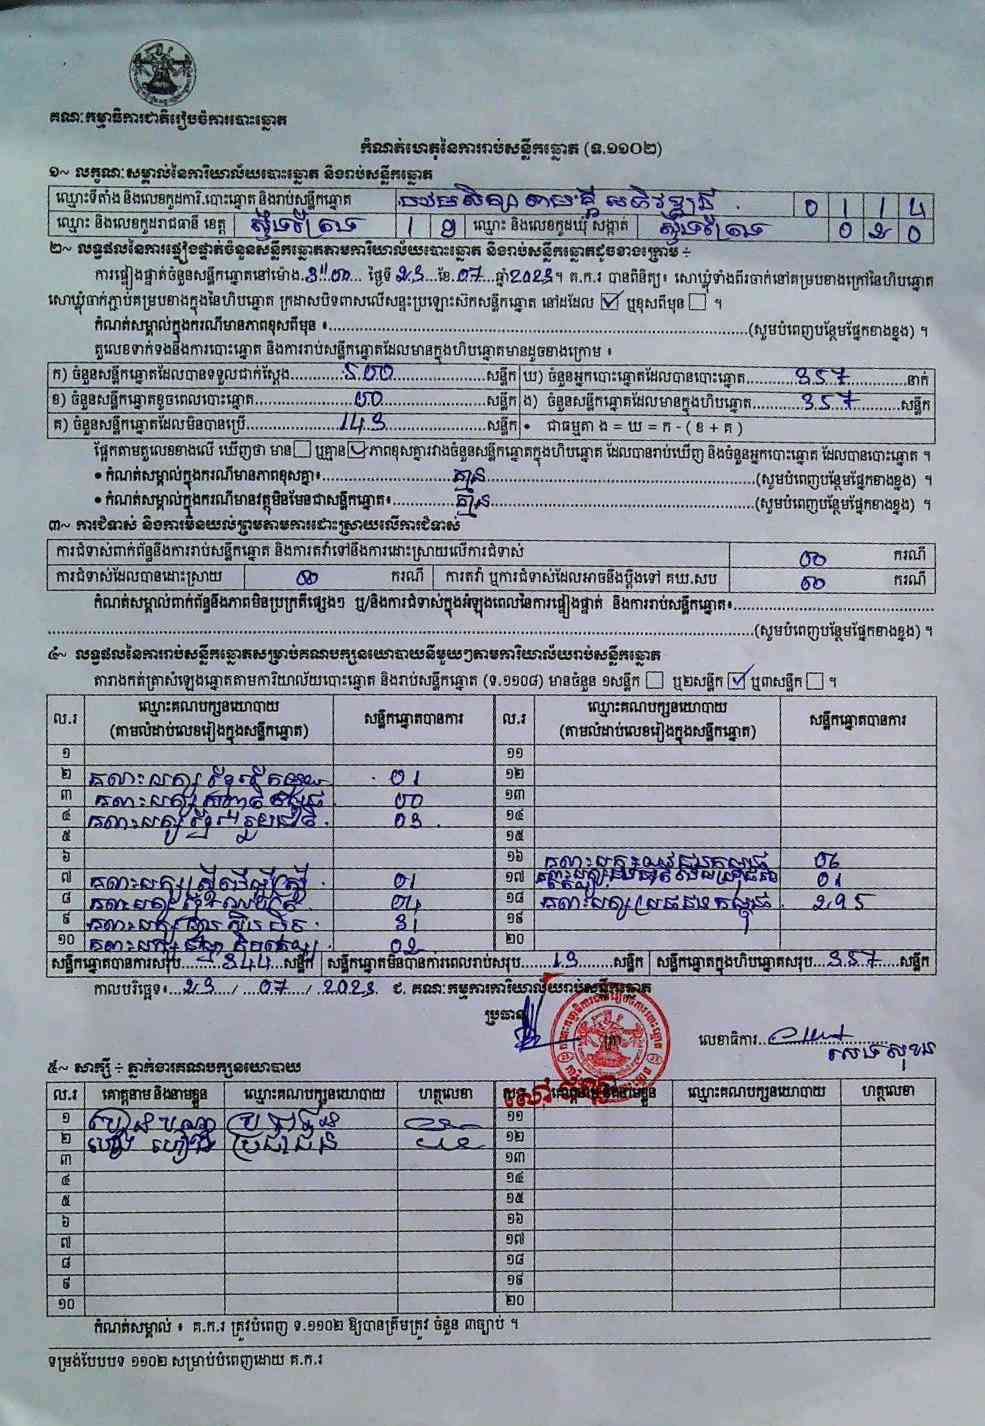 គណៈកម្មាធិការជាតិរៀបចំការបោះឆ្នោត
កំណត់ហេតុនៃការរាប់សន្លឹកឆ្នោត (ទ.១១០២)
១~ លក្ខណៈសម្គាល់នៃការិយាល័យបោះឆ្នោត និងរាប់សន្លឹកឆ្នោត
ឈ្មោះទីតាំង និងលេខកូដការិ.បោះឆ្នោត និងរាប់សន្លឹកឆ្នោត 0114
ឈ្មោះ និងលេខកូដរាជធានី ខេត្ត ស្ទឹងត្រែង 19 ឈ្មោះ និងលេខកូដឃុំ សង្កាត់ ស្ទឹងត្រែង 020
២~ លទ្ធផលនៃការផ្ទៀងផ្ទាត់ចំនួនសន្លឹកឆ្នោតតាមការិយាល័យបោះឆ្នោត និងរាប់សន្លឹកឆ្នោតដូចខាងក្រោម ÷
ការផ្ទៀងផ្ទាត់ចំនួនសន្លឹកឆ្នោតនៅម៉ោង 3:00 ថ្ងៃទី 23 ខែ 07 ឆ្នាំ 2023 ។ គ.ក.រ បានពិនិត្យ៖ សោឃ្លុំទាំងពីរចាក់នៅគម្របខាងក្រៅនៃហិបឆ្នោត
សោឃ្លុំចាក់ភ្ជាប់គម្របខាងក្នុងនៃហិបឆ្នោត ក្រដាសបិទពាសលើសន្ទះប្រឡោះសិកសន្លឹកឆ្នោត នៅដដែល ☑ ឬខុសពីមុន ☐ ។
កំណត់សម្គាល់ក្នុងករណីមានភាពខុសពីមុន ៖ (សូមបំពេញបន្ថែមផ្នែកខាងខ្នង) ។
តួលេខទាក់ទងនឹងការបោះឆ្នោត និងការរាប់សន្លឹកឆ្នោតដែលមានក្នុងហិបឆ្នោតមានដូចខាងក្រោម ៖
ក) ចំនួនសន្លឹកឆ្នោតដែលបានទទួលជាក់ស្តែង 500 សន្លឹក ឃ) ចំនួនអ្នកបោះឆ្នោតដែលបានបោះឆ្នោត 357 នាក់
ខ) ចំនួនសន្លឹកឆ្នោតខូចពេលបោះឆ្នោត 00 សន្លឹក ង) ចំនួនសន្លឹកឆ្នោតដែលមានក្នុងហិបឆ្នោត 357 សន្លឹក
គ) ចំនួនសន្លឹកឆ្នោតដែលមិនបានប្រើ 143 សន្លឹក • ជាធម្មតា ង = ឃ = ក - ( ខ + គ )
ផ្អែកតាមតួលេខខាងលើ ឃើញថា មាន ☐ ឬគ្មាន ☑ ភាពខុសគ្នារវាងចំនួនសន្លឹកឆ្នោតក្នុងហិបឆ្នោត ដែលបានរាប់ឃើញ និងចំនួនអ្នកបោះឆ្នោត ដែលបានបោះឆ្នោត ។
• កំណត់សម្គាល់ក្នុងករណីមានភាពខុសគ្នា៖ គ្មាន (សូមបំពេញបន្ថែមផ្នែកខាងខ្នង) ។
• កំណត់សម្គាល់ក្នុងករណីមានវត្ថុមិនមែនជាសន្លឹកឆ្នោត៖ គ្មាន (សូមបំពេញបន្ថែមផ្នែកខាងខ្នង) ។
៣~ ការជំទាស់ និងការមិនយល់ព្រមតាមការដោះស្រាយលើការជំទាស់
ការជំទាស់ពាក់ព័ន្ធនឹងការរាប់សន្លឹកឆ្នោត និងការតវ៉ាទៅនឹងការដោះស្រាយលើការជំទាស់ 00 ករណី
ការជំទាស់ដែលបានដោះស្រាយ 00 ករណី ការតវ៉ា ឬការជំទាស់ដែលអាចនឹងប្តឹងទៅ គឃ.សប 00 ករណី
កំណត់សម្គាល់ពាក់ព័ន្ធនឹងភាពមិនប្រក្រតីផ្សេងៗ ឬ/និងការជំទាស់ក្នុងអំឡុងពេលនៃការផ្ទៀងផ្ទាត់ និងការរាប់សន្លឹកឆ្នោត៖
(សូមបំពេញបន្ថែមផ្នែកខាងខ្នង) ។
៤~ លទ្ធផលនៃការរាប់សន្លឹកឆ្នោតសម្រាប់គណបក្សនយោបាយនីមួយៗតាមការិយាល័យរាប់សន្លឹកឆ្នោត
តារាងកត់ត្រាសំឡេងឆ្នោតតាមការិយាល័យបោះឆ្នោត និងរាប់សន្លឹកឆ្នោត (ទ.១១០៨) មានចំនួន ១សន្លឹក ☐ ឬ២សន្លឹក ☑ ឬ៣សន្លឹក ☐ ។
ល.រ ឈ្មោះគណបក្សនយោបាយ (តាមលំដាប់លេខរៀងក្នុងសន្លឹកឆ្នោត) សន្លឹកឆ្នោតបានការ ល.រ ឈ្មោះគណបក្សនយោបាយ (តាមលំដាប់លេខរៀងក្នុងសន្លឹកឆ្នោត) សន្លឹកឆ្នោតបានការ
១ ១១
២ គណបក្ស 01 ១២
៣ គណបក្ស 00 ១៣
៤ គណបក្ស 03 ១៤
៥ ១៥
៦ ១៦ គណបក្ស 06
៧ គណបក្ស 01 ១៧ 01
៨ គណបក្ស 04 ១៨ គណបក្សប្រជាជនកម្ពុជា 295
៩ គណបក្ស 31 ១៩
១០ គណបក្ស 02 ២០
សន្លឹកឆ្នោតបានការសរុប 344 សន្លឹក សន្លឹកឆ្នោតមិនបានការពេលរាប់សរុប 13 សន្លឹក សន្លឹកឆ្នោតក្នុងហិបឆ្នោតសរុប 357 សន្លឹក
កាលបរិច្ឆេទ៖ 23 / 07 / 2023 ជ. គណៈកម្មការការិយាល័យរាប់សន្លឹកឆ្នោត
ប្រធាន
លេខាធិការ
៥~ សាក្សី ÷ ភ្នាក់ងារគណបក្សនយោបាយ
ល.រ គោត្តនាម និងនាមខ្លួន ឈ្មោះគណបក្សនយោបាយ ហត្ថលេខា ល.រ គោត្តនាម និងនាមខ្លួន ឈ្មោះគណបក្សនយោបាយ ហត្ថលេខា
១ ប្រជាជន ១១
២ ប្រជាជន ១២
៣ ១៣
៤ ១៤
៥ ១៥
៦ ១៦
៧ ១៧
៨ ១៨
៩ ១៩
១០ ២០
កំណត់សម្គាល់ ៖ គ.ក.រ ត្រូវបំពេញ ទ.១១០២ ឱ្យបានត្រឹមត្រូវ ចំនួន ៣ច្បាប់ ។
ទម្រង់បែបបទ ១១០២ សម្រាប់បំពេញដោយ គ.ក.រ